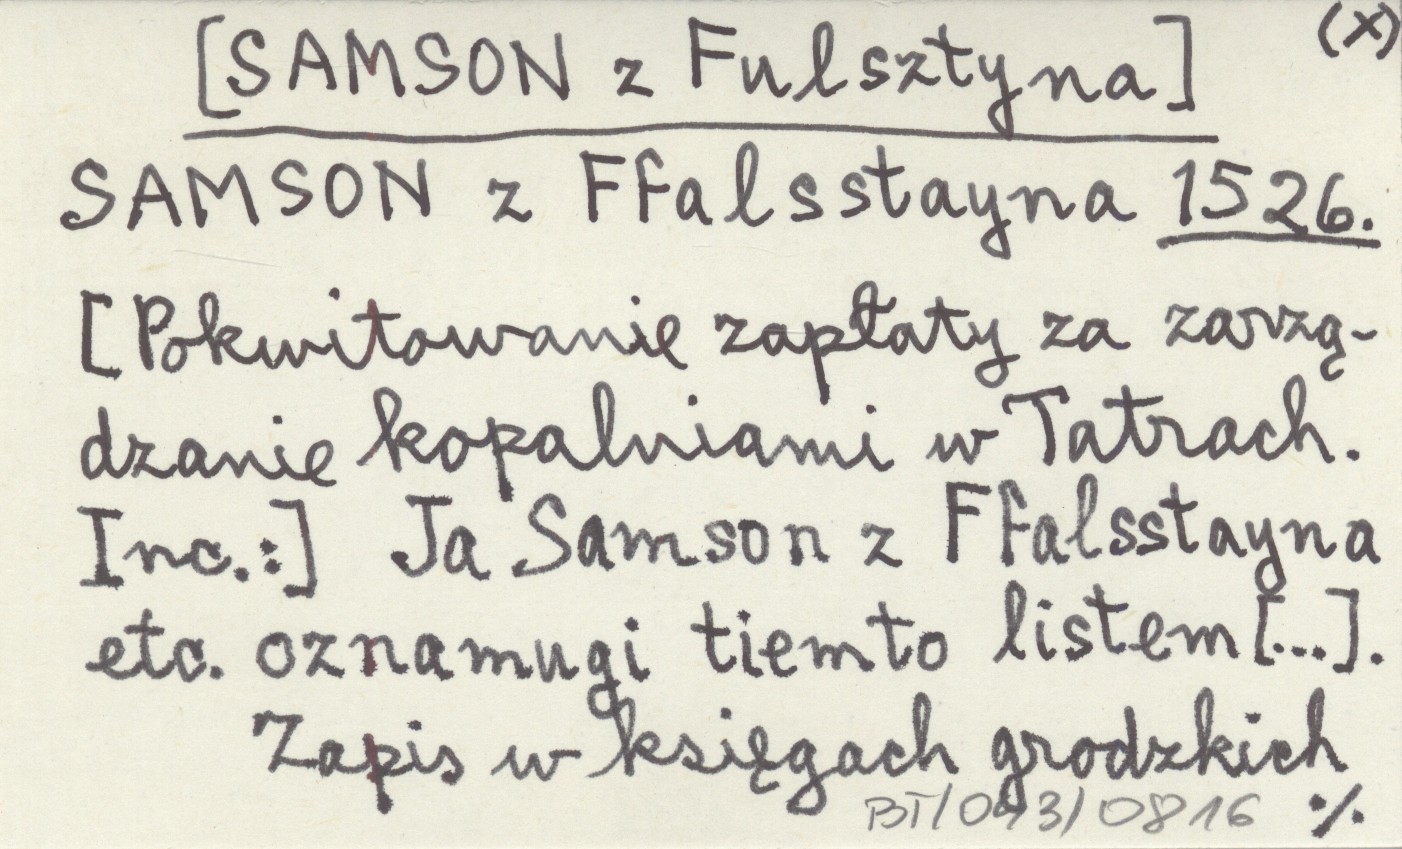 (x)
[SAMSON z Fulsztyna]
SAMSON z Ffalsstayna 1526.
[Pokwitowanie zapłaty za zarzą-
dzanie kopalniami w Tatrach.
Inc.:] Ja Samson z Ffalsstayna
etc. oznamugi tiemto listem [...].
Zapis w księgach grodzkich
BT/043/0816 ./.